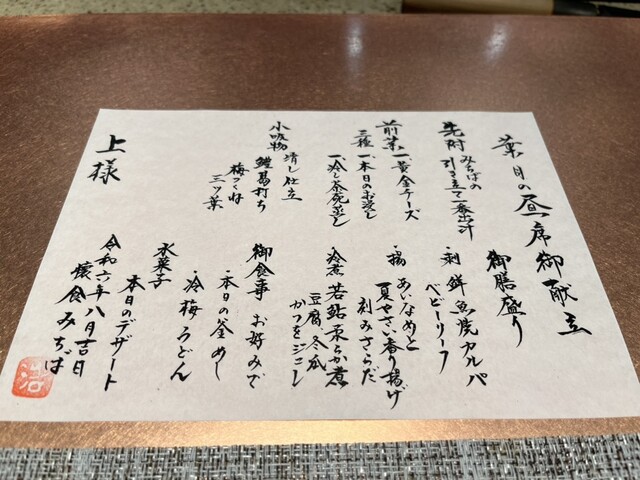 葉月の昼席御献立
先附 みちばの
引き立て一番出汁
前菜 一、黄金チーズ
三種 一、本日のお浸し
一、冷し茶碗蒸し
小吸物 清し仕立
鱧葛打ち
梅つくね
三ツ葉
御膳盛り
・刺 鮮魚焼カルパ
ベビーリーフ
・揚 あいなめと
夏やさい香り揚げ
刻みさらだ
・冷煮 若鮎柔らか煮
豆腐 冬瓜
かつをジュレ
御食事 お好みで
・本日の釜めし
・冷梅うどん
水菓子
本日のデザート
令和六年八月吉日
懐食みちば
上様